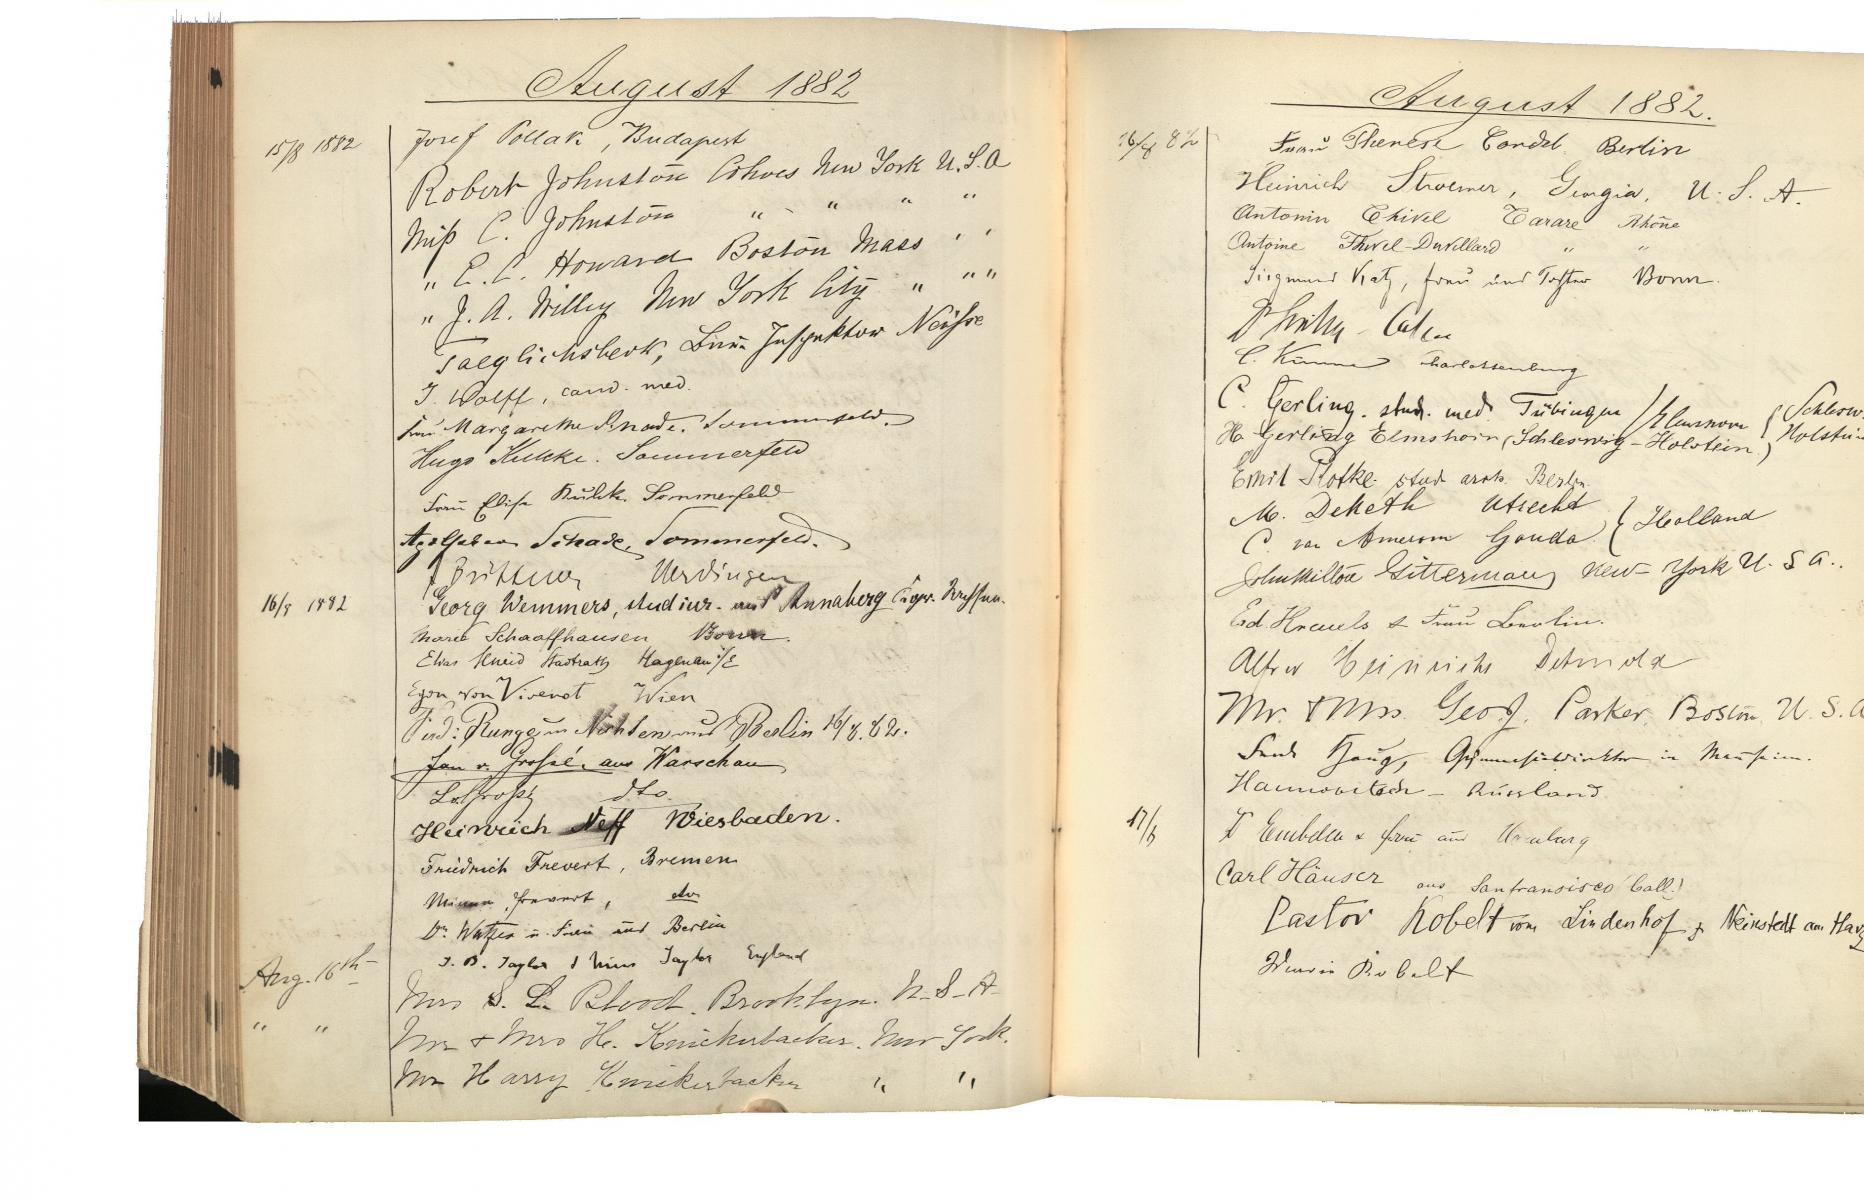 August 1882
15/8 1882 Josef Pollak, Budapest
Robert Johnston Cohoes New York U.S.A
Miß C. Johnston " " " "
" E. C. Howard Boston Mass " "
" J. A. Willey New York City " " "
Taeglichsbeck, Inspektor Neisse
J. Wolff, cand. med.
Frau Margarethe Schade. Sommerfeld.
Hugo Kulcke. Sommerfeld
Frau Elise Kulcke. Sommerfeld
Schade, Sommerfeld.
Büttner Uerdingen
16/8 1882 Georg Wemmers, stud iur. aus Annaberg
Marie Schaaffhausen Bonn.
Elias Stadtrath Hagenau i/E
Egon von Vivenot Wien
Ferd: Runge u Nichten aus Berlin 16/8.82.
Jan v. Grossé, aus Warschau
dto.
Heinrich Neff Wiesbaden.
Friedrich Frevert, Bremen
Minna Frevert, do
Dr. u. Frau aus Berlin
J. B. Taylor & Miss Taylor England
Aug. 16th Mrs S. L. Blood. Brooklyn. U-S-A-
" " Mr & Mrs H. Knickerbacker. New York.
Mr Harry Knickerbacker " "
August 1882.
16/8 82 Frau Therese Cordel Berlin
Heinrich Stroemer, Georgia, U. S. A.
Antonin Thivel Tarare Rhône
Antoine Thivel-Duvillard " "
Siegmund Katz, Frau und Tochter Bonn.
C. Charlottenburg
C. Gerling. stud. med. Tübingen / Elmshorn { Schlesw.
H. Gerling Elmshorn (Schleswig-Holstein) Holstein
Emil Rotke. stud arch. Berlin.
M. DeKeth Utrecht } Holland
C. van Amerom Gouda
John Milton Gitterman New-York U. S A..
Ed. & Frau Berlin.
Alfred Heinrichs Detmold
Mr. & Mrs. Geo. J. Parker, Boston, U. S. A
Haug, Gymnasialdirektor in Mannheim.
Hannovitsch - Russland
17/8 Dr Embden & Frau aus Hamburg
Carl Häuser aus Sanfransisco Call.)
Pastor Kobelt vom Lindenhof z. Neinstedt am Harz
Kobelt